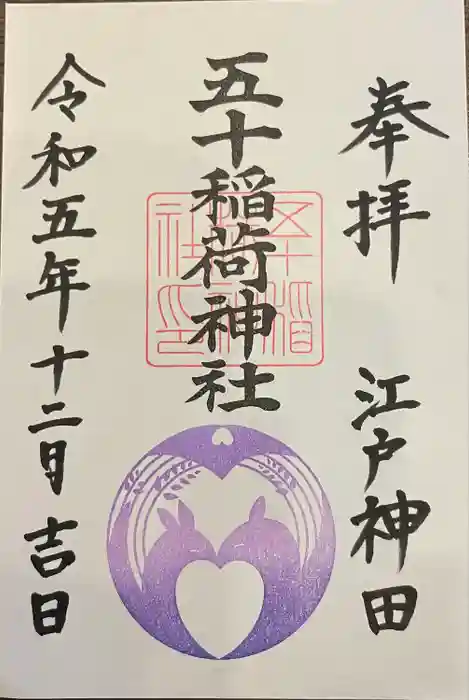 奉拝 江戸神田
五十稲荷神社
令和五年十二月吉日